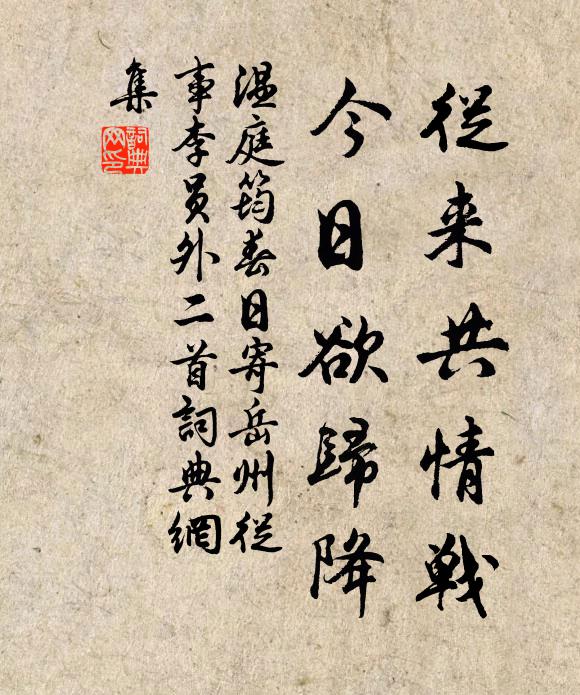 從来共情戰
今日欲歸降
温庭筠春日寄岳州從
事李员外二首詞典網
集
詞典
网印